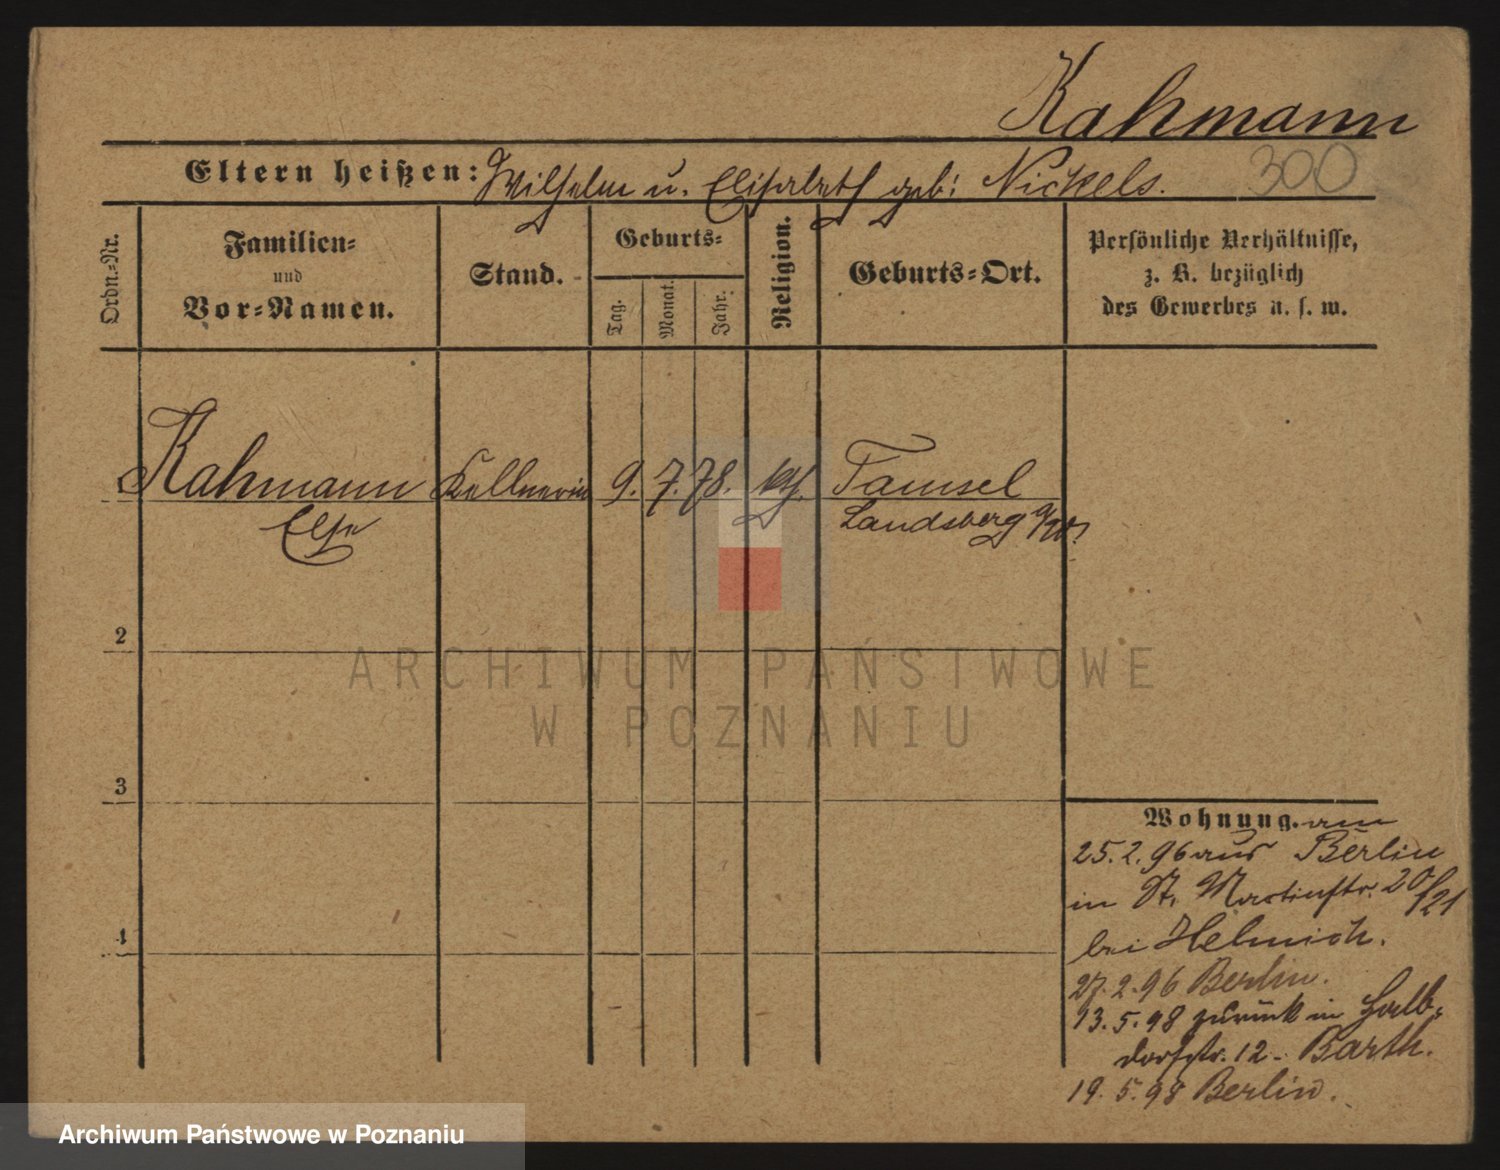 Kahmann
Eltern heißen: Wilhelm u. Elisabeth geb: Nickels.
300
Ordn.=Nr.
Familien=
und
Vor=Namen.
Stand.
Geburts=
Tag.
Monat.
Jahr.
Religion.
Geburts=Ort.
Persönliche Verhältnisse,
z. B. bezüglich
des Gewerbes u. s. w.
1 Kahmann Kellnerin 9. 7. 78. Tamsel
Else Landsberg a/W.
2
3
4
Wohnung. am
25.2.96 aus Berlin
in St. Martinstr. 20/21
bei Helmich.
27.2.96 Berlin.
13.5.98 zurück in Halb=
dorfstr. 12 - Barth.
19.5.98 Berlin.
ARCHIWUM PAŃSTWOWE
W POZNANIU
Archiwum Państwowe w Poznaniu